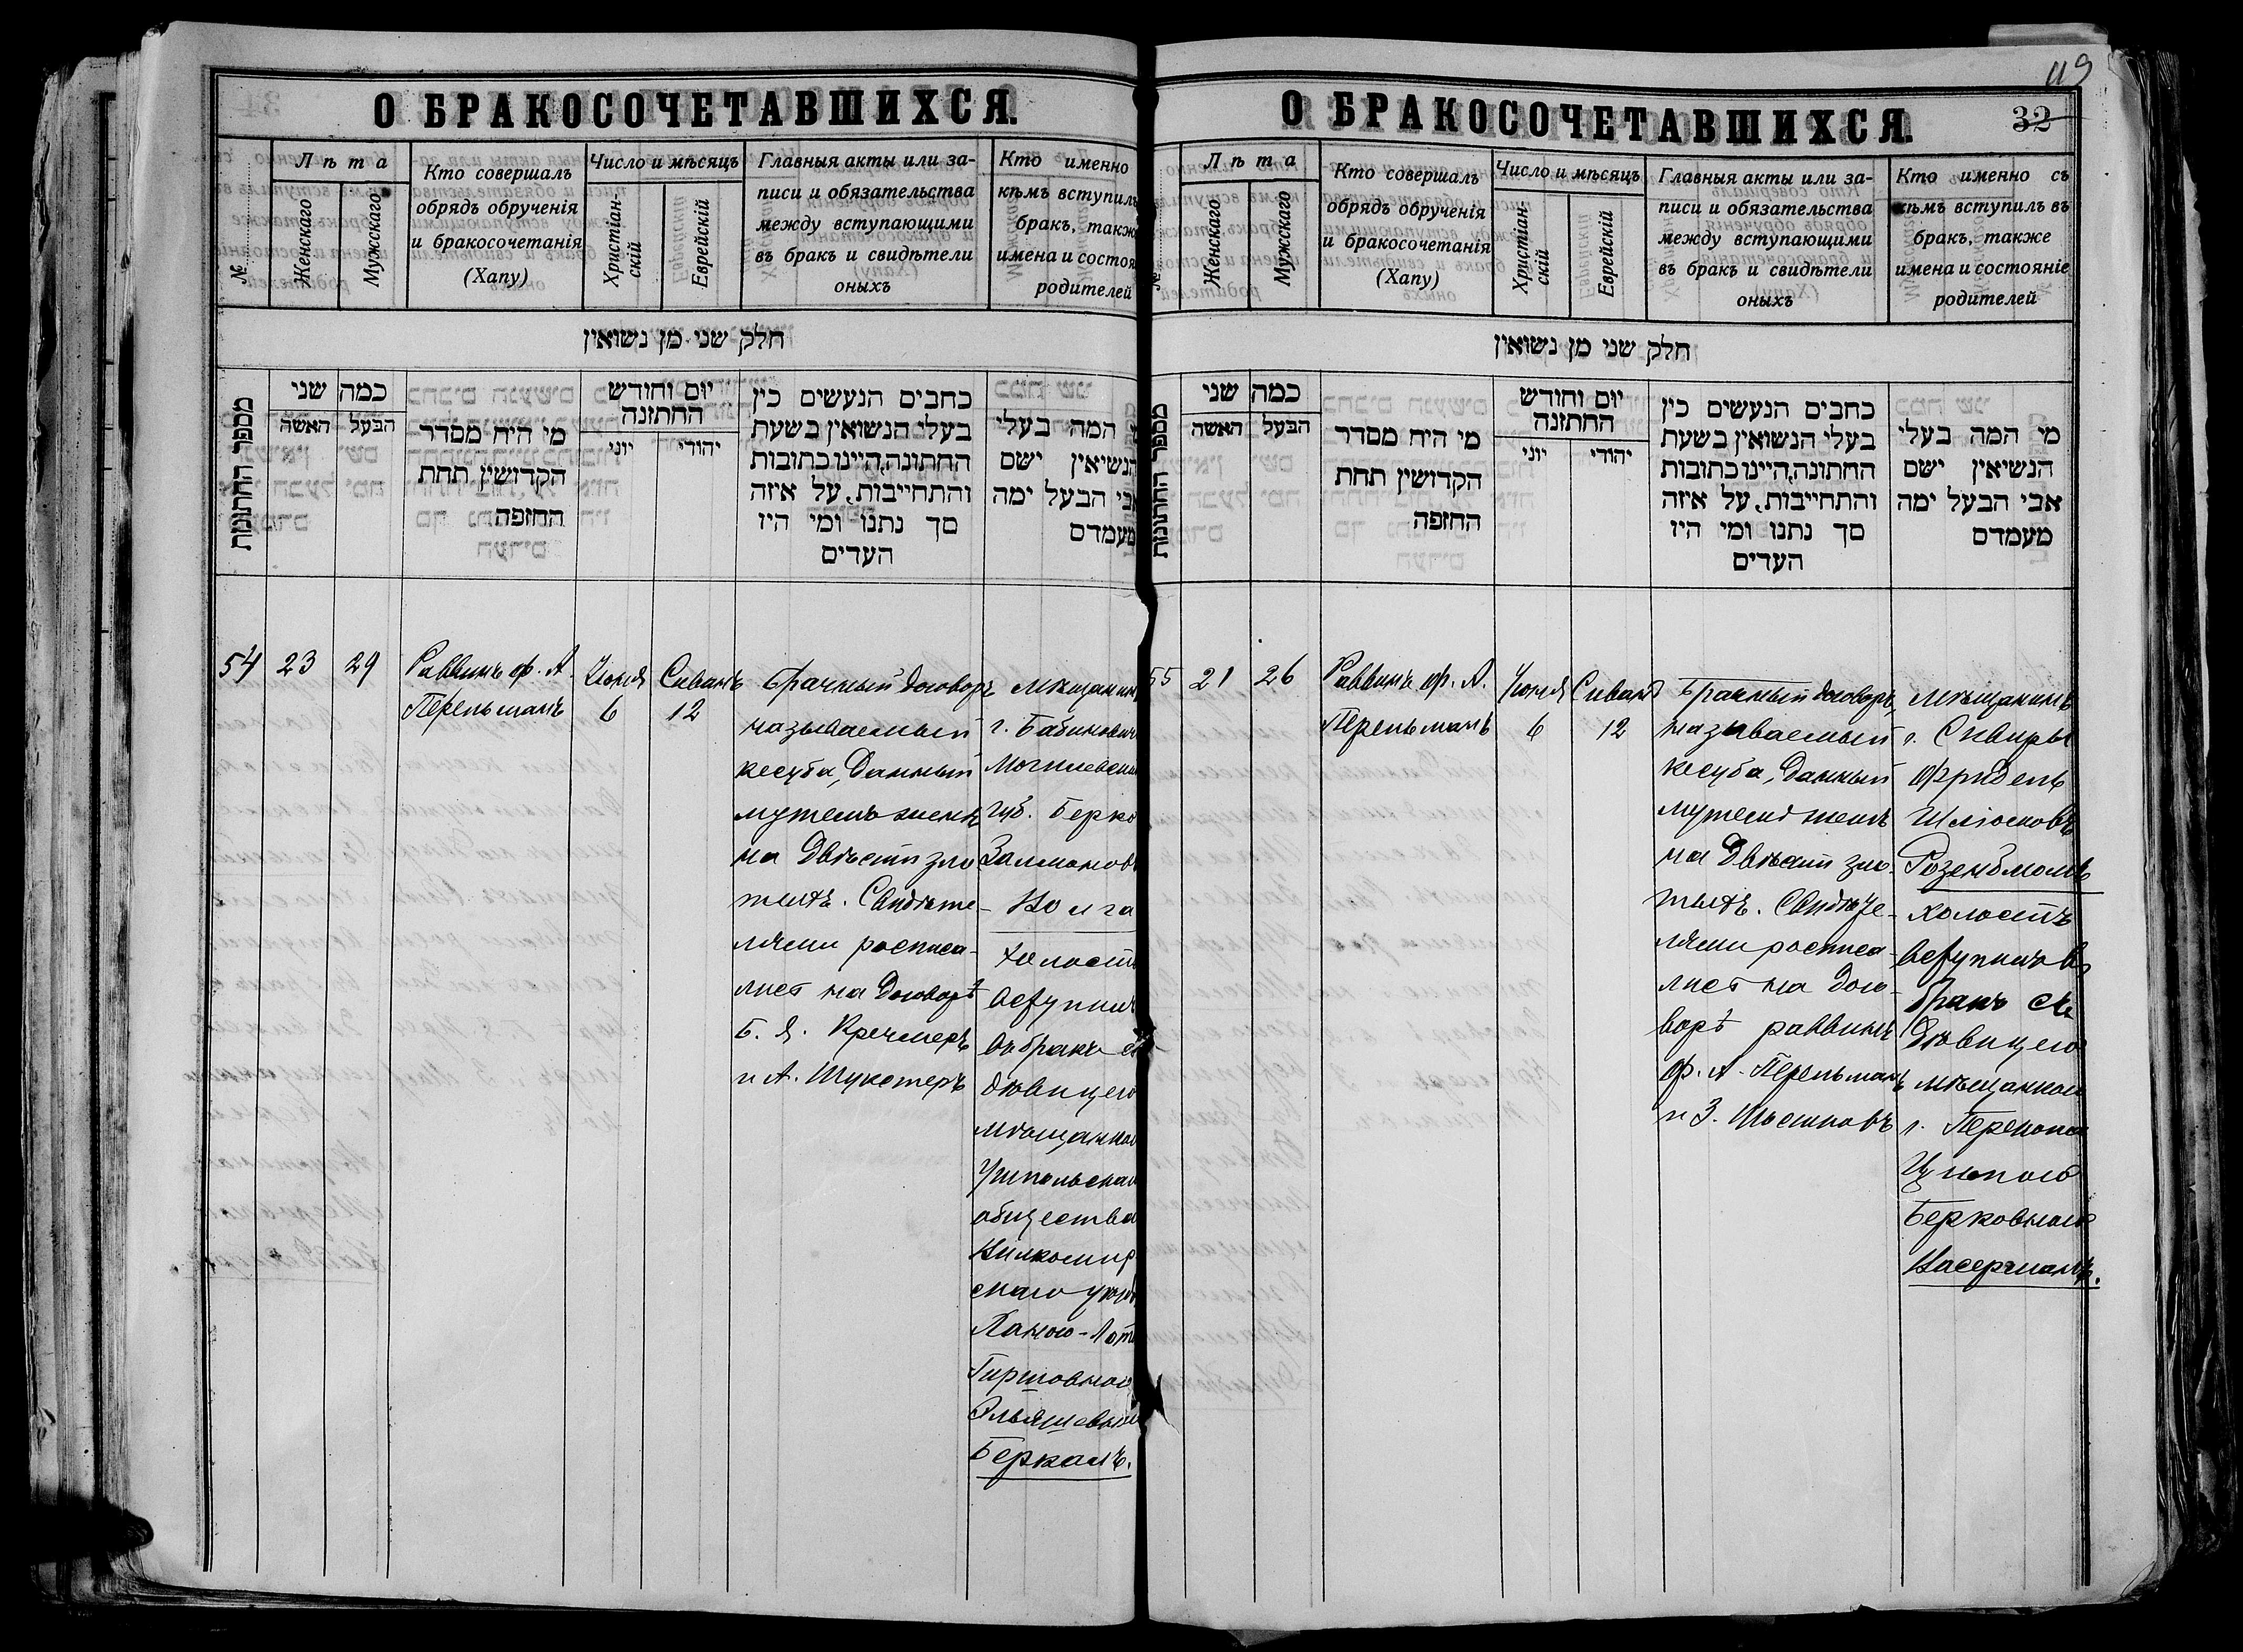 О БРАКОСОЧЕТАВШИХСЯ.
№
Лѣта
Женскаго
Мужскаго
Кто совершалъ
обрядъ обрученія
и бракосочетанія
(Хапу)
Число и мѣсяцъ
Христіан-
скій
Еврейскій
Главныя акты или за-
писи и обязательства
между вступающими
въ бракъ и свидѣтели
оныхъ
Кто именно
кѣмъ вступилъ
бракъ, также
имена и состоя
родителей
חלק שני מן נשואין
מספר החתונות
כמה שני
האשה
הבעל
מי היח מסדר
הקדושין תחת
החופה
יום וחודש
החתונה
יוני
יהודי
כתבים הנעשים בין
בעלי הנשואין בשעת
החתונה,היינו כתובות
והתחייבות, על איזה
סך נתנו ומי היו
העדים
המה בעלי
הנשיאין ישם
אבי הבעל ימה
מעמדם
54
23
29
Раввинъ ф. А.
Перельманъ
Іюня
6
Сиванъ
12
Брачный договоръ
называемый
кесуба, данный
мужемъ женѣ
на двѣсти зло
тыхъ. Свидѣте-
лями росписа-
лись на договорѣ
Б. Я. Кречмеръ
и А. Шукстеръ
Мѣщанинъ
г. Бабиновичи
Могилевской
губ. Берко
Залмановъ
холостъ
вступилъ
въ бракъ съ
дѣвицею
мѣщанкой
Ушпольскаго
общества
Вилкомир
скаго уѣзда
Гиршовною
Беркалъ.
О БРАКОСОЧЕТАВШИХСЯ.
119
32
Лѣта
Женскаго
Мужскаго
Кто совершалъ
обрядъ обрученія
и бракосочетанія
(Хапу)
Число и мѣсяцъ
Христіан-
скій
Еврейскій
Главныя акты или за-
писи и обязательства
между вступающими
въ бракъ и свидѣтели
оныхъ
Кто именно съ
кѣмъ вступилъ въ
бракъ, также
имена и состояніе
родителей
חלק שני מן נשואין
מספר החתונות
כמה שני
האשה
הבעל
מי היח מסדר
הקדושין תחת
החופה
יום וחודש
החתונה
יוני
יהודי
כתבים הנעשים בין
בעלי הנשואין בשעת
החתונה,היינו כתובות
והתחייבות, על איזה
סך נתנו ומי היו
העדים
מי המה בעלי
הנשיאין ישם
אבי הבעל ימה
מעמדם
55
21
26
Раввинъ ф. А.
Перельманъ
Іюня
6
Сиванъ
12
Брачный договоръ,
называемый
кесуба, данный
мужемъ женѣ
на двѣсти зло-
тыхъ. Свидѣте-
лями росписа-
лись на дого-
ворѣ раввинъ
ф. А. Перельманъ
и З.
Мѣщанинъ
г. Сквиры
Фридель
Шлiомовъ
Розенблюмъ
холостъ
вступилъ въ
бракъ съ
дѣвицею
мѣщанкою
г. Перекопа
Ципою
Берковною
Васерманъ.